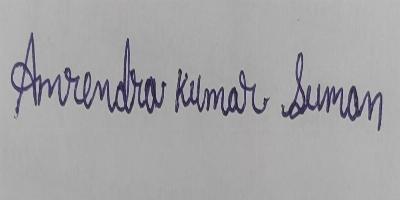 Amrendra Kumar Suman